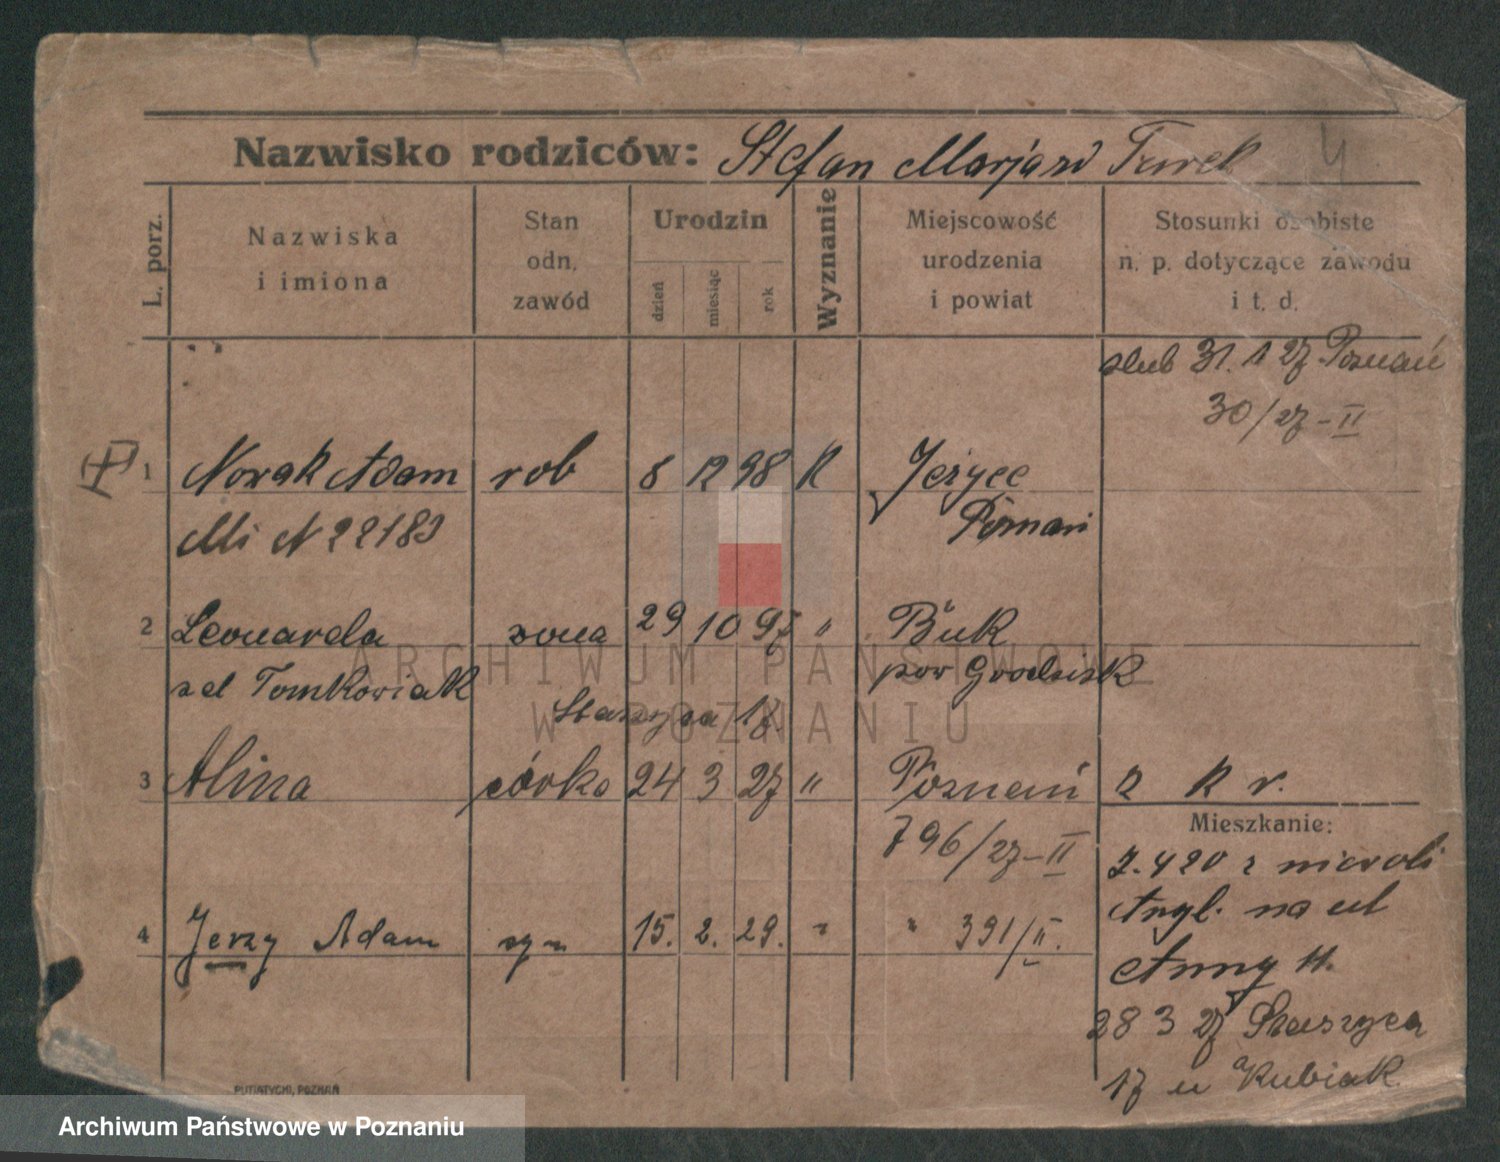 Nazwisko rodziców: Stefan Marjan Turek
L. porz.
Nazwiska
i imiona
Stan
odn.
zawód
Urodzin
dzień
miesiąc
rok
Wyznanie
Miejscowość
urodzenia
i powiat
Stosunki osobiste
n. p. dotyczące zawodu
i t. d.
ślub 31. 1 27 Poznań
30/27-II
1 Nowak Adam rob 8 12 98 K Jeżyce
Poznań
N 22183
2 Leonarda żona 29 10 97 " Buk
Tomkowiak pow Grodzisk
Staszyca 17
3 Alina córka 24 3 27 " Poznań
796/27-II
2 K r.
Mieszkanie:
z niewoli
Angl. na ul
Anny 11.
28 3 27 Staszyca
17 u Kubiak
4 Jerzy Adam syn 15. 2. 29. " " 391/II.
PUTIATYCKI, POZNAŃ
ARCHIWUM PAŃSTWOWE
W POZNANIU
Archiwum Państwowe w Poznaniu